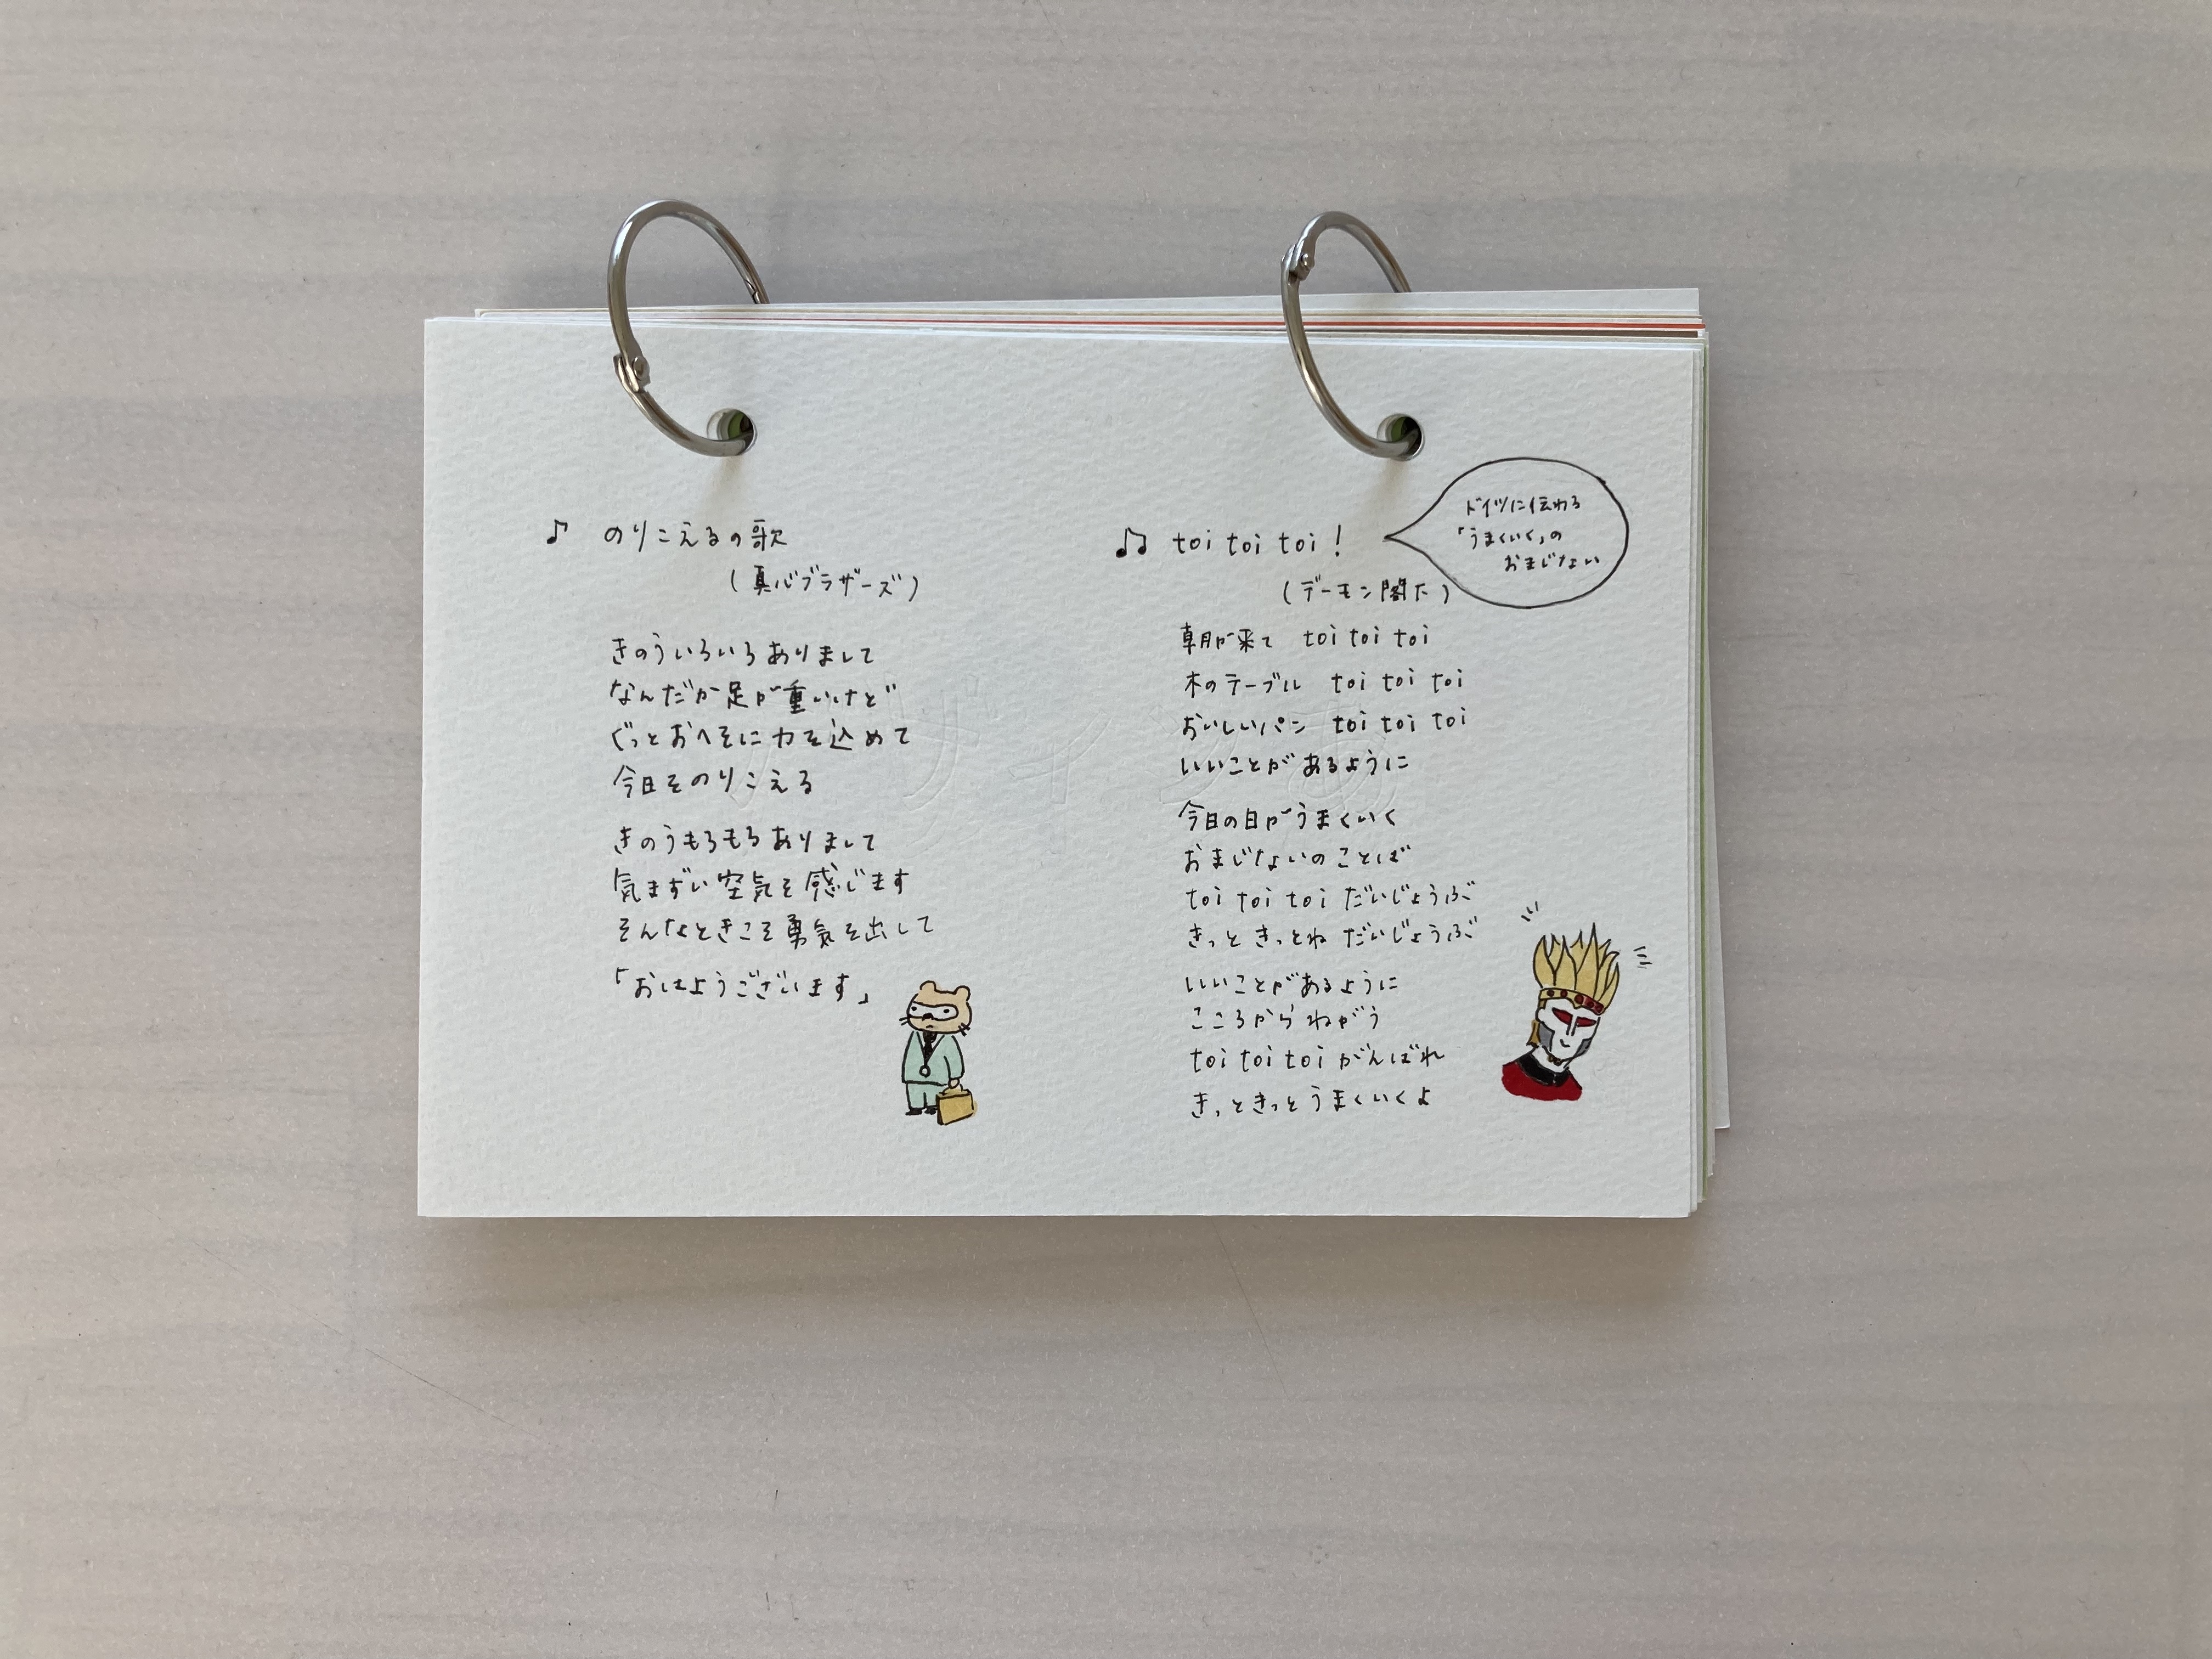 ♪ のりこえるの歌
(真心ブラザーズ)
きのういろいろありまして
なんだか足が重いけど
ぐっとおへそに力を込めて
今日をのりこえる
きのうもろもろありまして
気まずい空気を感じます
そんなときこそ勇気を出して
「おはようございます」
♫ toi toi toi!
(デーモン閣下)
ドイツに伝わる
「うまくいく」の
おまじない
朝が来て toi toi toi
木のテーブル toi toi toi
おいしいパン toi toi toi
いいことがあるように
今日の日がうまくいく
おまじないのことば
toi toi toi だいじょうぶ
きっと きっとね だいじょうぶ
いいことがあるように
こころから ねがう
toi toi toi がんばれ
きっときっと うまくいくよ